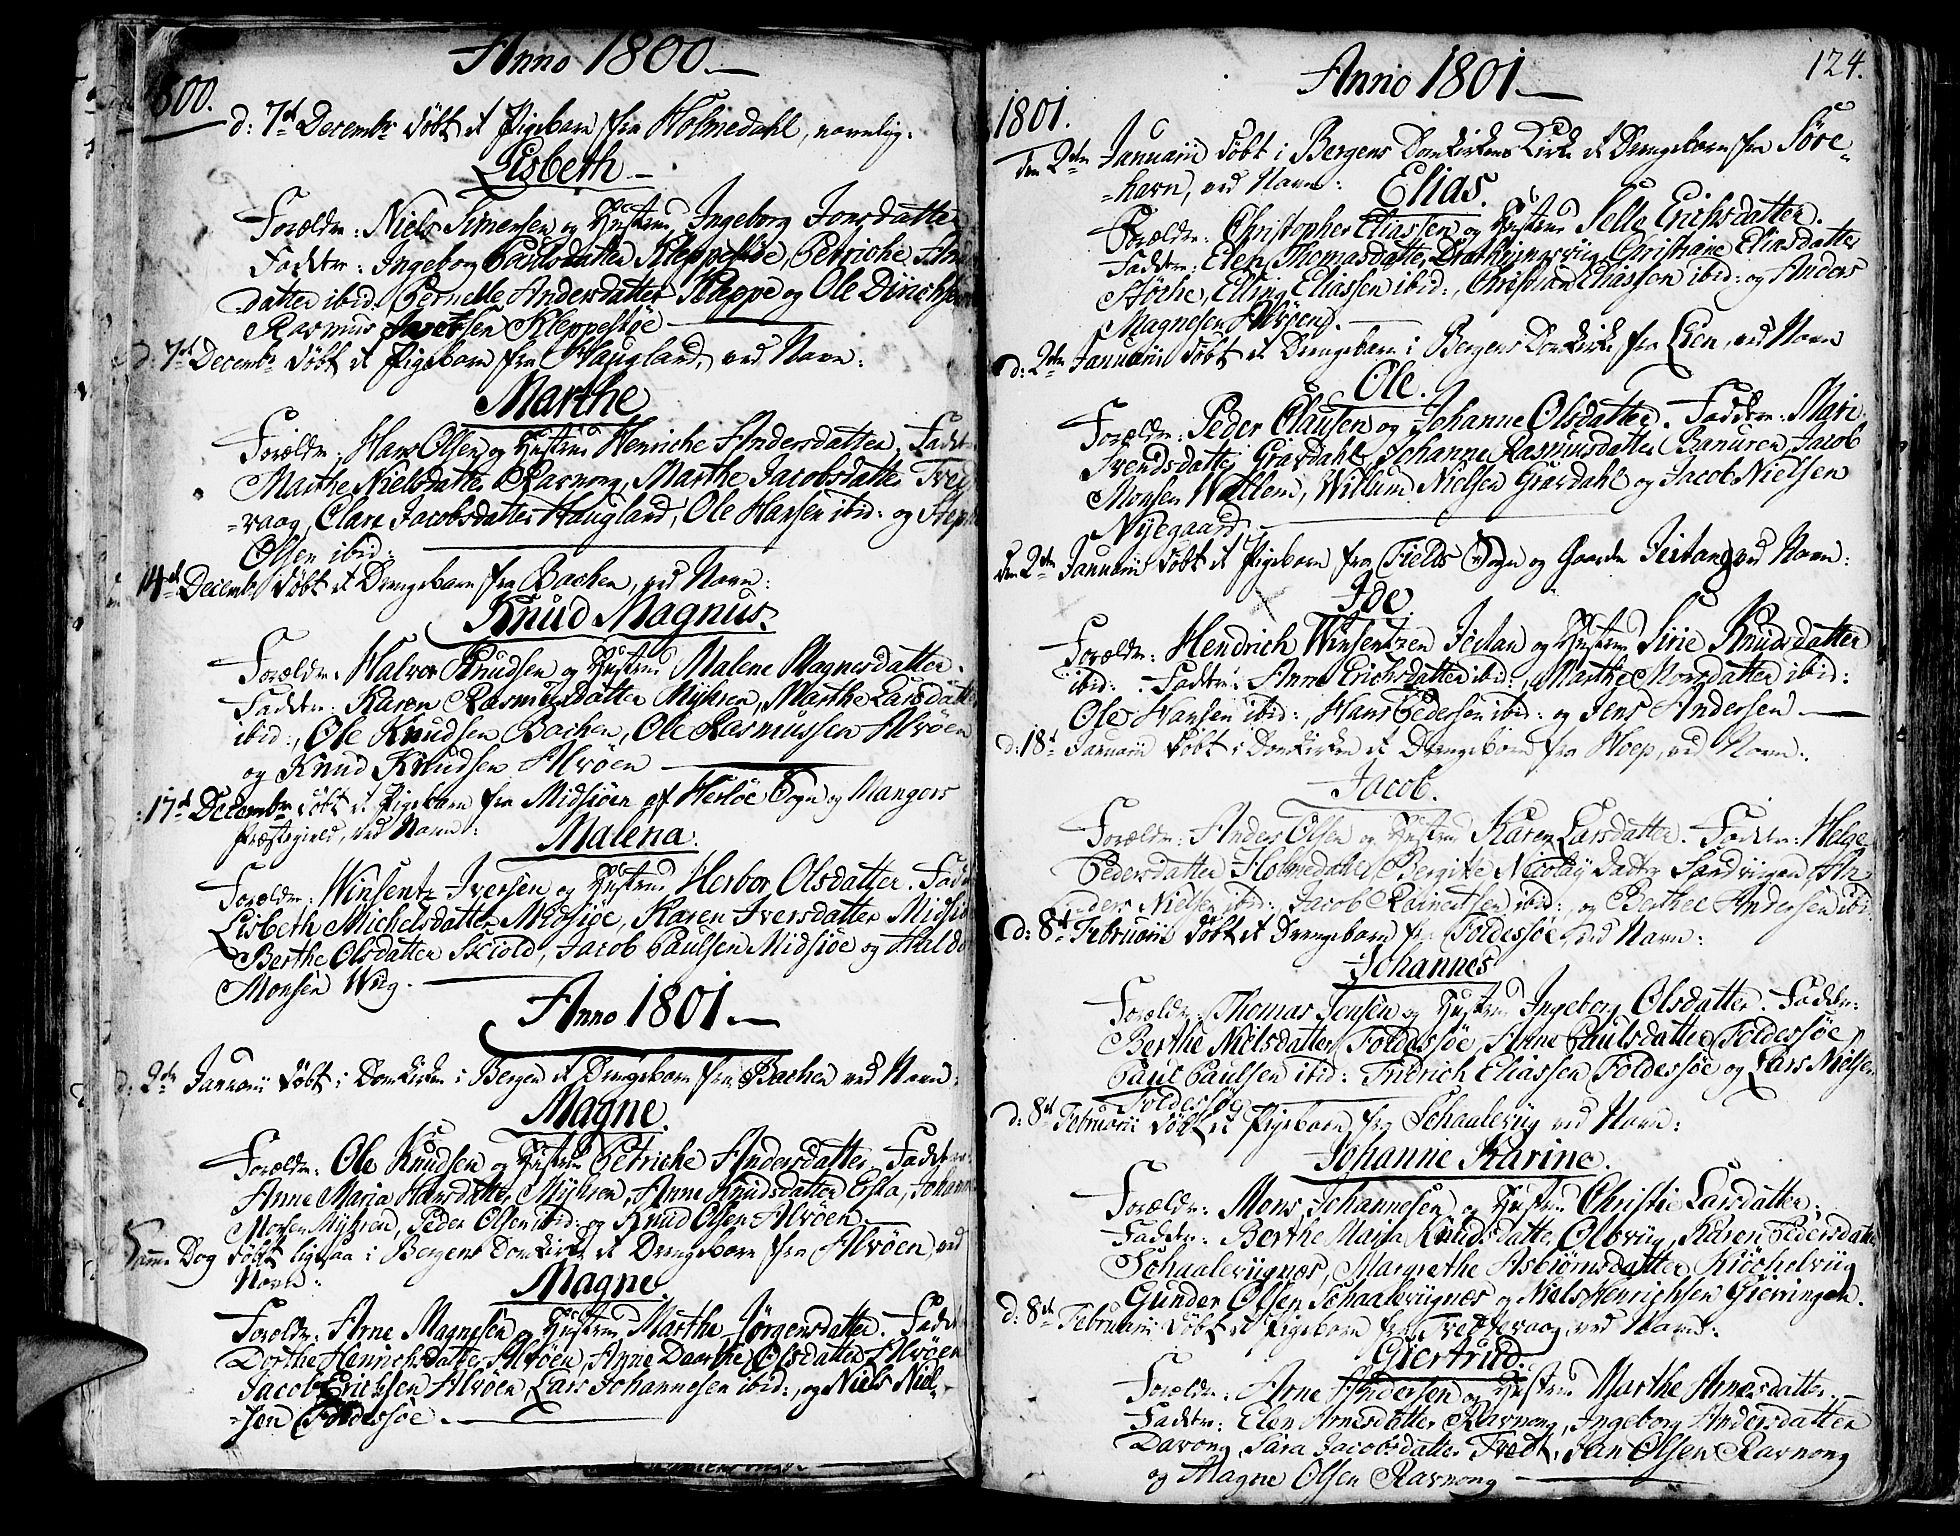 Anno 1800.
1800.
d: 7de Decembr døbt et Pigebarn fra Holmedahl, navnlig:
Lisbeth
Forældr: Niels Simensen og Hustru Ingeborg Jonsdatter
Faddr: Ingeborg Paulsdatter Kleppestøe, Petriche
datter ibid: Pernelle Andersdatter Kleppe og Ole
Rasmus Jacobsen Kleppestøe
d: 7de Decembr døbt et Pigebarn fra Haugland, ved Navn:
Marthe
Forældr: Hans Olsen og Hustru Henriche Andersdatter. Fadr:
Marthe Nielsdatter Ravnong, Marthe Jacobsdatter
vaag, Clare Jacobsdatter Haugland, Ole Hansen ibid: og
Olsen ibid:
14de Decembr døbt et Drengebarn fra Bachen, ved Navn:
Knud Magnus.
Forældr: Halvor Knudsen og Hustru Malene Magnesdatter.
Faddr: Karen Rasmusdatter Myhren, Marthe Larsdatter
ibid:, Ole Knudsen Bachen, Ole Rasmussen Alvøen
og Knud Knudsen Alvøen
17de Decembr døbt et Pigebarn fra Midsiøen af Herløe Sogn og Mangers
Præstegield, ved Navn:
Malena.
Forældr: Winsentz Iversen og Hustru Herbor Olsdatter. Fadr:
Lisbeth Michelsdatter Midsiøe, Karen Iversdatter Midsiøe
Berthe Olsdatter Sciold, Jacob Paulsen Midsiøe og
Monsen Wiig.
Anno 1801.
d: 2den Januarii døbt i Domkirken i Bergen et Drengebarn fra Bachen ved Navn:
Magne.
Forældr: Ole Knudsen og Hustru Petriche Andersdatter. Faddr:
Anne Maria Hansdatter Myhren, Anne Knudsdatter, Johannes
Monsen Myhren, Peder Olsen ibid: og Knud Olsen Alvøen
Samme Dag døbt ligesaa i Bergens Domkirke et Drengebarn fra Alvøen, ved
Navn:
Magne.
Forældr: Arne Magnesen og Hustru Marthe Jørgensdatter. Faddr
Dorthe Henrichsdatter Alvøen, Anne Daarthe Olsdatter Alvøen
Jacob Erichsen Alvøen, Lars Johannesen ibid:, og Niels Niel-
-sen Foldessøe.
Anno 1801.
124.
1801.
den 2den Januarii døbt i Bergens Domkirkens Kirke et Drengebarn fra Søre-
-havn, ved Navn: Elias.
Forældr: Christopher Eliassen og Hustru Selle Erichsdatter.
Faddr: Elen Thomasdatter, Christiane Eliasdatter
Elling Eliassen ibid:, Christian Eliassen ibid: og Anders
Magnesen Alvøen.
d: 2den Januarii døbt et Drengebarn i Bergens Domkirke fra Lien, ved Navn
Ole.
Forældr: Peder Clausen og Johanne Olsdatter. Faddr: Mari
Svendsdatter Gravdahl, Johanne Rasmusdatter, Jacob
Monsen Wallem, Willum Nielsen Gravdahl og Jacob Nielsen
Nyegaard.
den 2den Januarii døbt et Pigebarn fra Fields Sogn og Gaarden, ved Navn:
Ide.
Forældr: Hendrich Winsentzen og Hustru Sirie Knudsdatter
ibid: Faddr: Anne Erichsdatter ibid:, Marthe Monsdatter ibid:
Ole Hansen ibid:, Hans Pedersen ibid: og Jens Andersen
d: 18de Januarii døbt i Domkirken et Drengebarn fra Hop, ved Navn:
Jacob.
Forældr: Anders Olsen og Hustru Karen Larsdatter. Faddr: Helge
Pedersdatter Holmedahl, Bergitte Nicolay Dadtr Sandviigen, An-
-ders Nielsen ibid:, Jacob ibid:, og Berthel Andersen ibid:
d: 8de Februarii døbt et Drengebarn fra Foldessøe, ved Navn:
Johannes
Forældr: Thomas Jonsen og Hustru Ingeborg Olsdatter. Faddr:
Berthe Nielsdatter Foldessøe, Arne Paulsdatter Foldessøe,
Paul Paulsen ibid: Fridrich Eliassen Foldessøe og Lars Nielsen
Foldessøe
d: 8de Februarii døbt et Pigebarn fra Schaaleviig ved Navn:
Johanne Karine.
Forældr: Mons Johannesen og Hustru Christi Larsdatter,
Faddr: Berthe Maria Knudsdatter Olsviig, Karen Pedersdatter
Schaaleviignæs, Margrethe Asbiømsdatter Kiøchelviig
Gunder Olsen Schaaleviignæs og Niels Henrichsen Gierringen.
d: 8de Februarii døbt et Pigebarn fra Tvettevaag, ved Navn:
Giertrud.
Forældr: Arne Andersen og Hustru Marthe Arnesdatter.
Faddr: Elen Arnesdatter Ravnong, Ingeborg Andersdatter
Davong, Sara Jacobsdatter Tvedt, Jan Olsen Ravnong
og Magne Olsen Ravnong